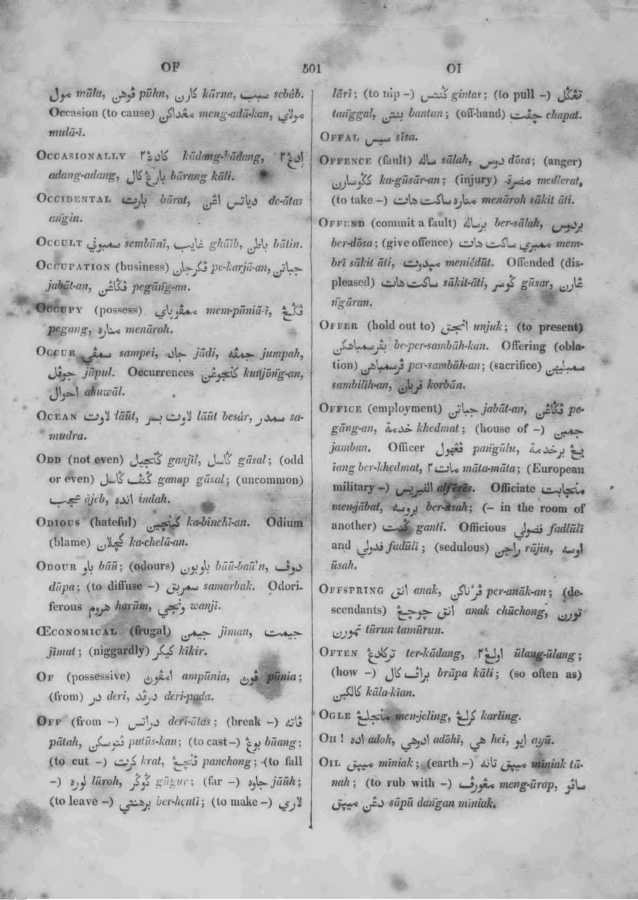 OF 501 OI
مول mūla, ڤوهن pūhn, كارن kārna, سبب sebāb.
Occasion (to cause) مڠداكن meng-adā-kan, مولاي
mulā-ī.
OCCASIONALLY كادڠ٢ kādang-kādang, ادڠ٢
adang-adang, بارڠ كالي bārang kāli.
OCCIDENTAL بارت bārat, دياتس اڠن de-ātas
angin.
OCCULT سمبوني sembūni, غايب ghāīb, باطن bātin.
OCCUPATION (business) ڤكرجان pe-karjā-an, جباتن
jabāt-an, pegāng-an.
OCCUPY (possess) ممڤوڽاي mem-pūniā-ī, ڤڬڠ
pegang, مناره menāroh.
OCCUR سمڤي sampei, جادي jādi, جمڤه jumpah,
جوڤل jūpul. Occurrences kunjūng-an,
احوال ahuwāl.
OCEAN لاوت lāūt, لاوت بسر lāūt besár, سمدر sa-
mudra.
ODD (not even) ڬنجيل ganjīl, ڬاسل gāsal; (odd
or even) ڬنڤ ڬاسل ganap gāsal; (uncommon)
عجب ājeb, انده indah.
ODIOUS (hateful) ka-binchī-an. Odium
(blame) ka-chelā-an.
ODOUR باو bāū; (odours) باوباون bāū-baū'n, دوڤ
dūpa; (to diffuse –) سمربق samarbak. Odori-
ferous هروم harūm, وڠي wanjī.
ŒCONOMICAL (frugal) جيمن jīman, جيمت
jīmat; (niggardly) كيكر kīkir.
OF (possessive) امڤون ampūnia, ڤون pūnia;
(from) در deri, درڤد deri-pada.
OFF (from –) دراتس deri-ātas; (break –) ڤاته
pātah, ڤوتسكن putūs-kan; (to cast –) بوڠ būang;
(to cut –) كرت krat, ڤنچڠ panchong; (to fall
–) لوره lūroh, ڬوڬر gūgur; (far –) جاوه jāūh;
(to leave –) برهنتي ber-hentī; (to make –) لاري
lāri; (to nip –) ڬنتس gintas; (to pull –) تڠڬل
tanggal, بنتن bantun; (off-hand) چڤت chapat.
OFFAL سيس sīsa.
OFFENCE (fault) ساله sālah, دوس dōsa; (anger)
ka-gūsār-an; (injury) مضرة medlerat,
(to take –) مناره ساكت هات menāroh sākit āti.
OFFEND (commit a fault) برساله ber-sālah, بردوس
ber-dōsa; (give offence) ممبري ساكت هات mem-
bri sākit āti, meniédūt. Offended (dis-
pleased) ساكت هات sākit-āti, ڬوسر gūsar, ڠارن
ngāran.
OFFER (hold out to) انجق unjuk; (to present)
be-per-sambāh-kan. Offering (obla-
tion) ڤرسمباهن per-sambāh-an; (sacrifice) سمبليهن
sambilīh-an, قربان korbān.
OFFICE (employment) جباتن jabāt-an, pe-
gāng-an, خدمة khedmat; (house of –) جمبن
jamban. Officer ڤڠهولو pangūlu, يڠ برخدمة
īang ber-khedmat, مات٢ māta-māta; (European
military –) الفيريس alferes. Officiate منجابت
men-jābat, بروسه ber-āsah; (– in the room of
another) ڬنت ganti. Officious فضولي fadlūli
and فدولي fadūli; (sedulous) راجن rājin, اوسه
ūsah.
OFFSPRING انق anak, ڤرانقن per-anāk-an; (de-
scendants) انق چوچڠ anak chūchong, تورن
تمورن tūrun tamūrun.
OFTEN تركادڠ ter-kādang, اولڠ٢ ūlang-ūlang;
(how –) براڤ كالي brāpa kāli; (so often as)
كالكين kāla-kian.
OGLE منجلڠ men-jeling, كرلڠ karling.
OH! اده adoh, ادوهي adōhi, هي hei, ايو ayū.
OIL ميڽق miniak; (earth –) ميڽق تانه miniak tā-
nah; (to rub with –) مڠورڤ meng-ūrap, ساڤو
دڠن ميڽق sāpū dañgan miniak.